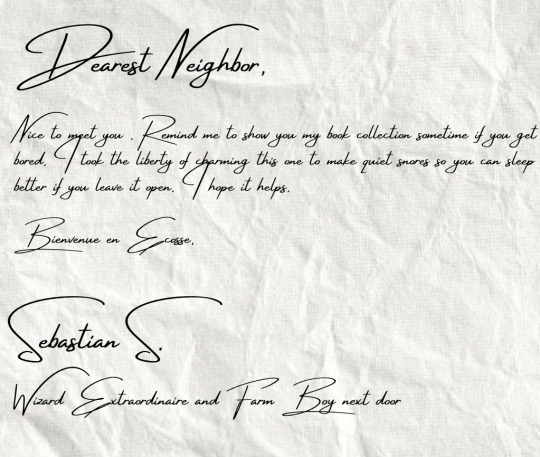 Dearest Neighbor,
Nice to meet you . Remind me to show you my book collection sometime if you get
bored. I took the liberty of charming this one to make quiet snores so you can sleep
better if you leave it open. I hope it helps.
Bienvenue en Ecosse,
Sebastian S.
Wizard Extraordinaire and Farm Boy next door